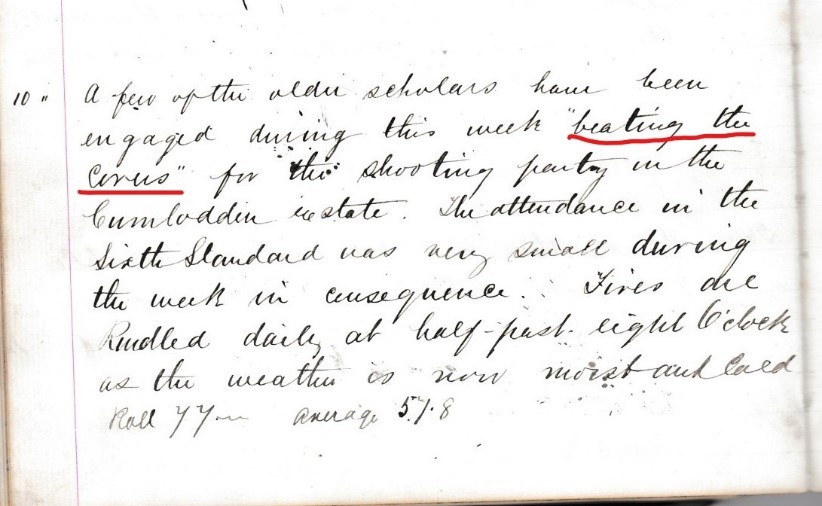 10 " A few of the older scholars have been
engaged during this week "beating the
covers" for the shooting party in the
Cumloddin estate. The attendance in the
Sixth Standard was very small during
the week in consequence. Fires are
kindled daily at half-past eight O'clock
as the weather is now moist and Cold
Roll 77 average 57.8